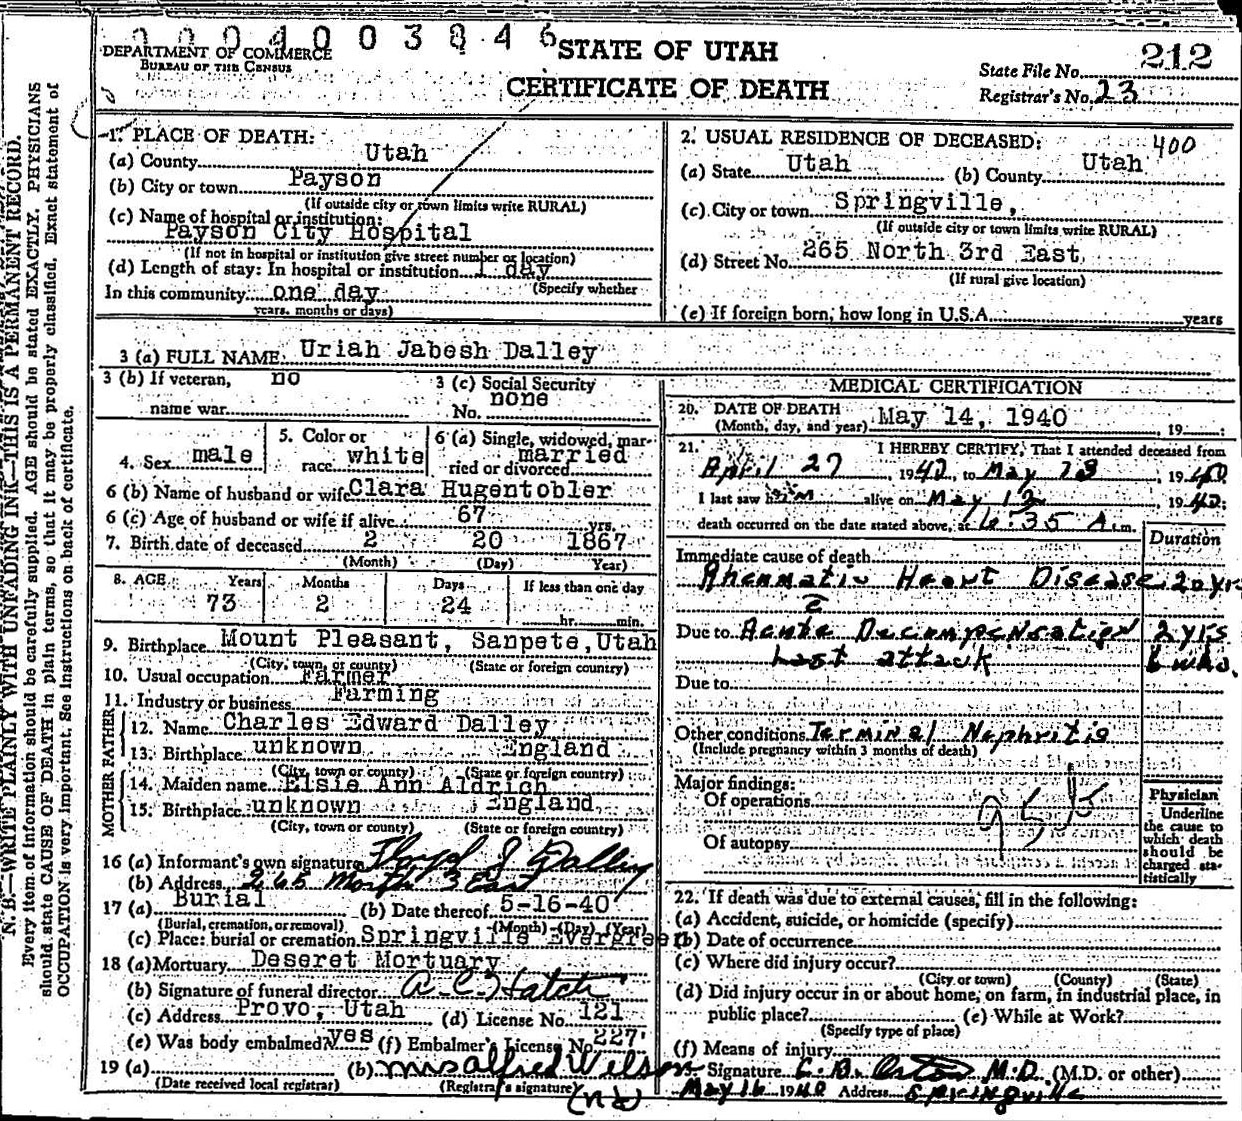 0004003846
DEPARTMENT OF COMMERCE
BUREAU OF THE CENSUS
STATE OF UTAH
CERTIFICATE OF DEATH
State File No. 212
Registrar's No. 23
N. B.—WRITE PLAINLY WITH UNFADING INK—THIS IS A PERMANENT RECORD.
Every item of information should be carefully supplied. AGE should be stated EXACTLY. PHYSICIANS
should state CAUSE OF DEATH in plain terms, so that it may be properly classified. Exact statement of
OCCUPATION is very important. See instructions on back of certificate.
1. PLACE OF DEATH:
(a) County Utah
(b) City or town Payson
(If outside city or town limits write RURAL)
(c) Name of hospital or institution:
Payson City Hospital
(If not in hospital or institution give street number or location)
(d) Length of stay: In hospital or institution 1 day
(Specify whether
In this community one day
years, months or days)
2. USUAL RESIDENCE OF DECEASED: 400
(a) State Utah (b) County Utah
(c) City or town Springville,
(If outside city or town limits write RURAL)
(d) Street No. 265 North 3rd East
(If rural give location)
(e) If foreign born, how long in U.S.A. years
3 (a) FULL NAME Uriah Jabesh Dalley
3 (b) If veteran, no
name war
3 (c) Social Security
No. none
4. Sex male
5. Color or
race white
6 (a) Single, widowed, mar-
ried or divorced married
6 (b) Name of husband or wife Clara Hugentobler
6 (c) Age of husband or wife if alive 67 yrs.
7. Birth date of deceased 2 20 1867
(Month) (Day) Year)
8. AGE Years Months Days If less than one day
73 2 24 hr. min.
9. Birthplace Mount Pleasant, Sanpete, Utah
(City, town, or county) (State or foreign country)
10. Usual occupation Farmer
11. Industry or business Farming
FATHER
12. Name Charles Edward Dalley
13. Birthplace unknown England
(City, town or county) (State or foreign country)
MOTHER
14. Maiden name Elsie Ann Aldrich
15. Birthplace unknown England
(City, town or county) (State or foreign country)
16 (a) Informant's own signature Dalley
(b) Address 265 North 3 East
17 (a) Burial (b) Date thereof 5-16-40
(Burial, cremation, or removal) (Month) (Day) (Year)
(c) Place: burial or cremation Springville Evergreen
18 (a) Mortuary Deseret Mortuary
(b) Signature of funeral director A. C. Hatch
(c) Address Provo, Utah (d) License No. 121
(e) Was body embalmed? yes (f) Embalmer's License No. 227
19 (a) (b) Mrs Alfred Wilson
(Date received local registrar) (Registrar's signature)
MEDICAL CERTIFICATION
20. DATE OF DEATH May 14, 1940
(Month, day, and year) , 19
21. I HEREBY CERTIFY, That I attended deceased from
April 27, 1940, to May 13, 1940
I last saw him alive on May 13 1940;
death occurred on the date stated above, at 6:35 A.m.
Duration
Immediate cause of death
Rheumatic Heart Disease 20 yrs
Due to Acute Decompensation 2 yrs
Last attack 6 wks.
Due to
Other conditions Terminal Nephritis
(Include pregnancy within 3 months of death)
Major findings:
Of operations
Of autopsy
Physician
Underline
the cause to
which death
should be
charged sta-
tistically
22. If death was due to external causes, fill in the following:
(a) Accident, suicide, or homicide (specify)
(b) Date of occurrence
(c) Where did injury occur?
(City or town) (County) (State)
(d) Did injury occur in or about home, on farm, in industrial place, in
public place? (e) While at Work?
(Specify type of place)
(f) Means of injury
Signature M.D. (M.D. or other)
May 16 1940 Address Springville